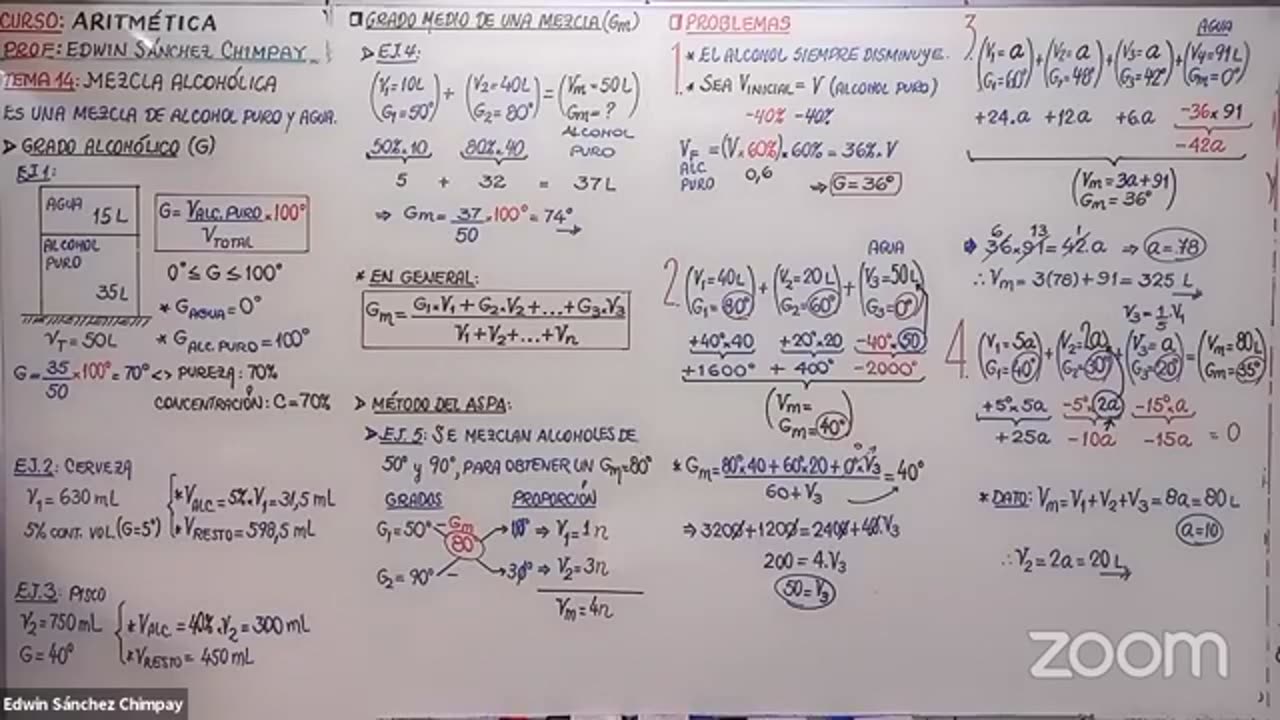 CURSO: ARITMÉTICA
PROF: EDWIN SÁNCHEZ CHIMPAY
TEMA 14: MEZCLA ALCOHÓLICA
ES UNA MEZCLA DE ALCOHOL PURO Y AGUA.
➤ GRADO ALCOHÓLICO (G)
EJ.1:
AGUA 15L
ALCOHOL PURO 35L
V_T = 50L
G = V_ALC. PURO / V_TOTAL × 100°
0° ≤ G ≤ 100°
* G_AGUA = 0°
* G_ALC. PURO = 100°
G = 35/50 × 100° = 70° <> PUREZA: 70%
CONCENTRACIÓN: C = 70%
EJ.2: CERVEZA
V₁ = 630 mL
5% CONT. VOL (G=5°)
* V_ALC = 5%.V₁ = 31,5 mL
* V_RESTO = 598,5 mL
EJ.3: PISCO
V₂ = 750 mL
G = 40°
* V_ALC. = 40%.V₂ = 300 mL
* V_RESTO = 450 mL
GRADO MEDIO DE UNA MEZCLA (Gm)
➤ EJ.4:
(V₁=10L G₁=50°) + (V₂=40L G₂=80°) = (Vm=50L Gm=?)
50%.10 80%.40 ALCOHOL PURO
5 + 32 = 37L
⇒ Gm = 37/50 × 100° = 74°
* EN GENERAL:
Gm = G₁.V₁ + G₂.V₂ + ... + G₃.V₃ / V₁ + V₂ + ... + Vn
➤ MÉTODO DEL ASPA:
➤ EJ.5: SE MEZCLAN ALCOHOLES DE
50° y 90°, PARA OBTENER UN Gm=80°
GRADOS PROPORCIÓN
G₁=50° Gm 10° ⇒ V₁=1n
80°
G₂=90° 30° ⇒ V₂=3n
Vm=4n
PROBLEMAS
1
* EL ALCOHOL SIEMPRE DISMINUYE.
* SEA V INICIAL = V (ALCOHOL PURO)
-40% -40%
V_F ALC PURO = (V×60%)×60% = 36%.V
0,6 ⇒ G=36°
2
AGUA
(V₁=40L G₁=80°) + (V₂=20L G₂=60°) + (V₃=50L G₃=0°)
+40°×40 +20°×20 -40°×50
+1600° + 400° -2000°
(Vm= Gm=40°)
* Gm = 80°×40 + 60°×20 + 0°×V₃ / 60+V₃ = 40°
⇒ 3200 + 1200 = 2400 + 40.V₃
200 = 4.V₃
50 = V₃
3
AGUA
(V₁=a G₁=60°) + (V₂=a G₂=48°) + (V₃=a G₃=42°) + (V₄=91L Gm=0°)
+24.a +12a +6a -36×91
-42a
(Vm=3a+91 Gm=36°)
6 13 1
36×91 = 42.a ⇒ a=78
∴ Vm = 3(78) + 91 = 325 L
V₃ = 1/5.V₁
4
(V₁=5a G₁=40°) + (V₂=2a G₂=30°) + (V₃=a G₃=20°) = (Vm=80L Gm=35°)
+5°×5a -5°×2a -15°×a
+25a -10a -15a = 0
* DATO: Vm = V₁+V₂+V₃ = 8a = 80L
a=10
∴ V₂ = 2a = 20L
zoom
Edwin Sánchez Chimpay